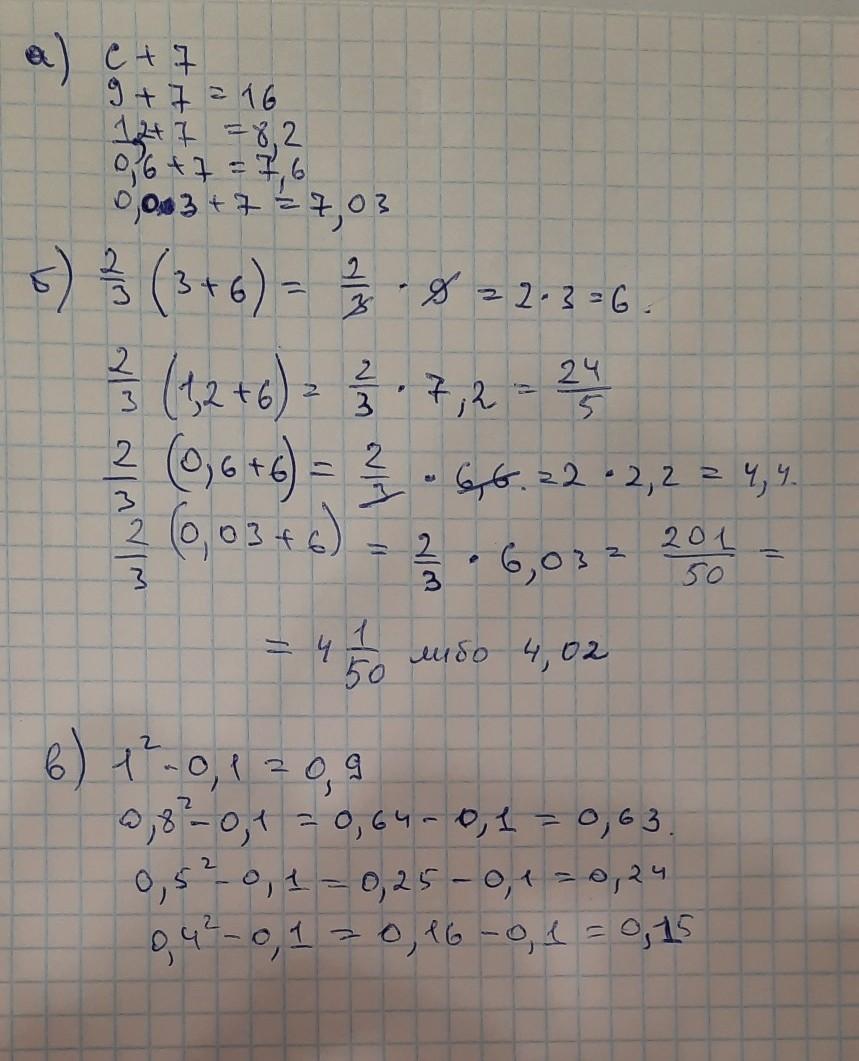 а) с + 7
9 + 7 = 16
1,2 + 7 = 8,2
0,6 + 7 = 7,6
0,03 + 7 = 7,03
б) 2/3 (3 + 6) = 2/3 · 9 = 2 · 3 = 6.
2/3 (1,2 + 6) = 2/3 · 7,2 = 24/5
2/3 (0,6 + 6) = 2/3 · 6,6. = 2 · 2,2 = 4,4.
2/3 (0,03 + 6) = 2/3 · 6,03 = 201/50 =
= 4 1/50 либо 4,02
в) 1² - 0,1 = 0,9
0,8² - 0,1 = 0,64 - 0,1 = 0,63.
0,5² - 0,1 = 0,25 - 0,1 = 0,24
0,4² - 0,1 = 0,16 - 0,1 = 0,15